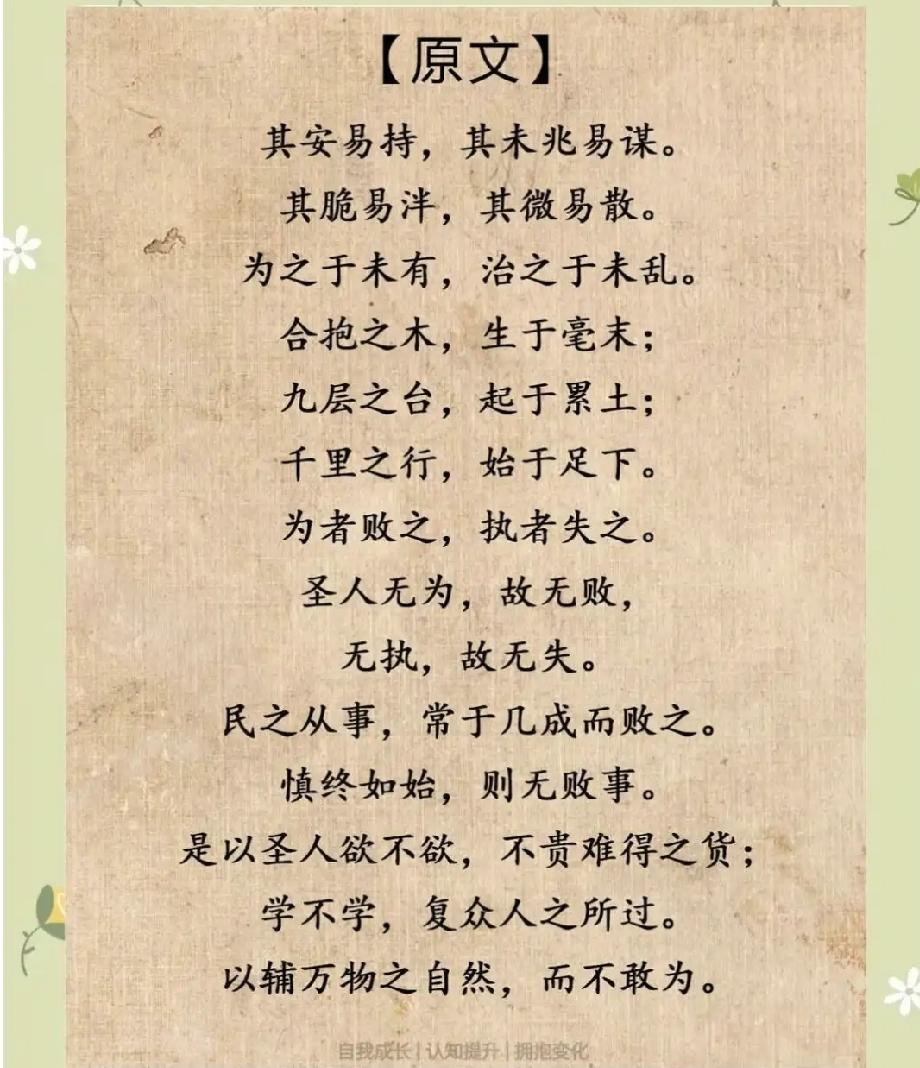 【原文】
其安易持，其未兆易谋。
其脆易泮，其微易散。
为之于未有，治之于未乱。
合抱之木，生于毫末；
九层之台，起于累土；
千里之行，始于足下。
为者败之，执者失之。
圣人无为，故无败，
无执，故无失。
民之从事，常于几成而败之。
慎终如始，则无败事。
是以圣人欲不欲，不贵难得之货；
学不学，复众人之所过。
以辅万物之自然，而不敢为。
自我成长 | 认知提升 | 拥抱变化